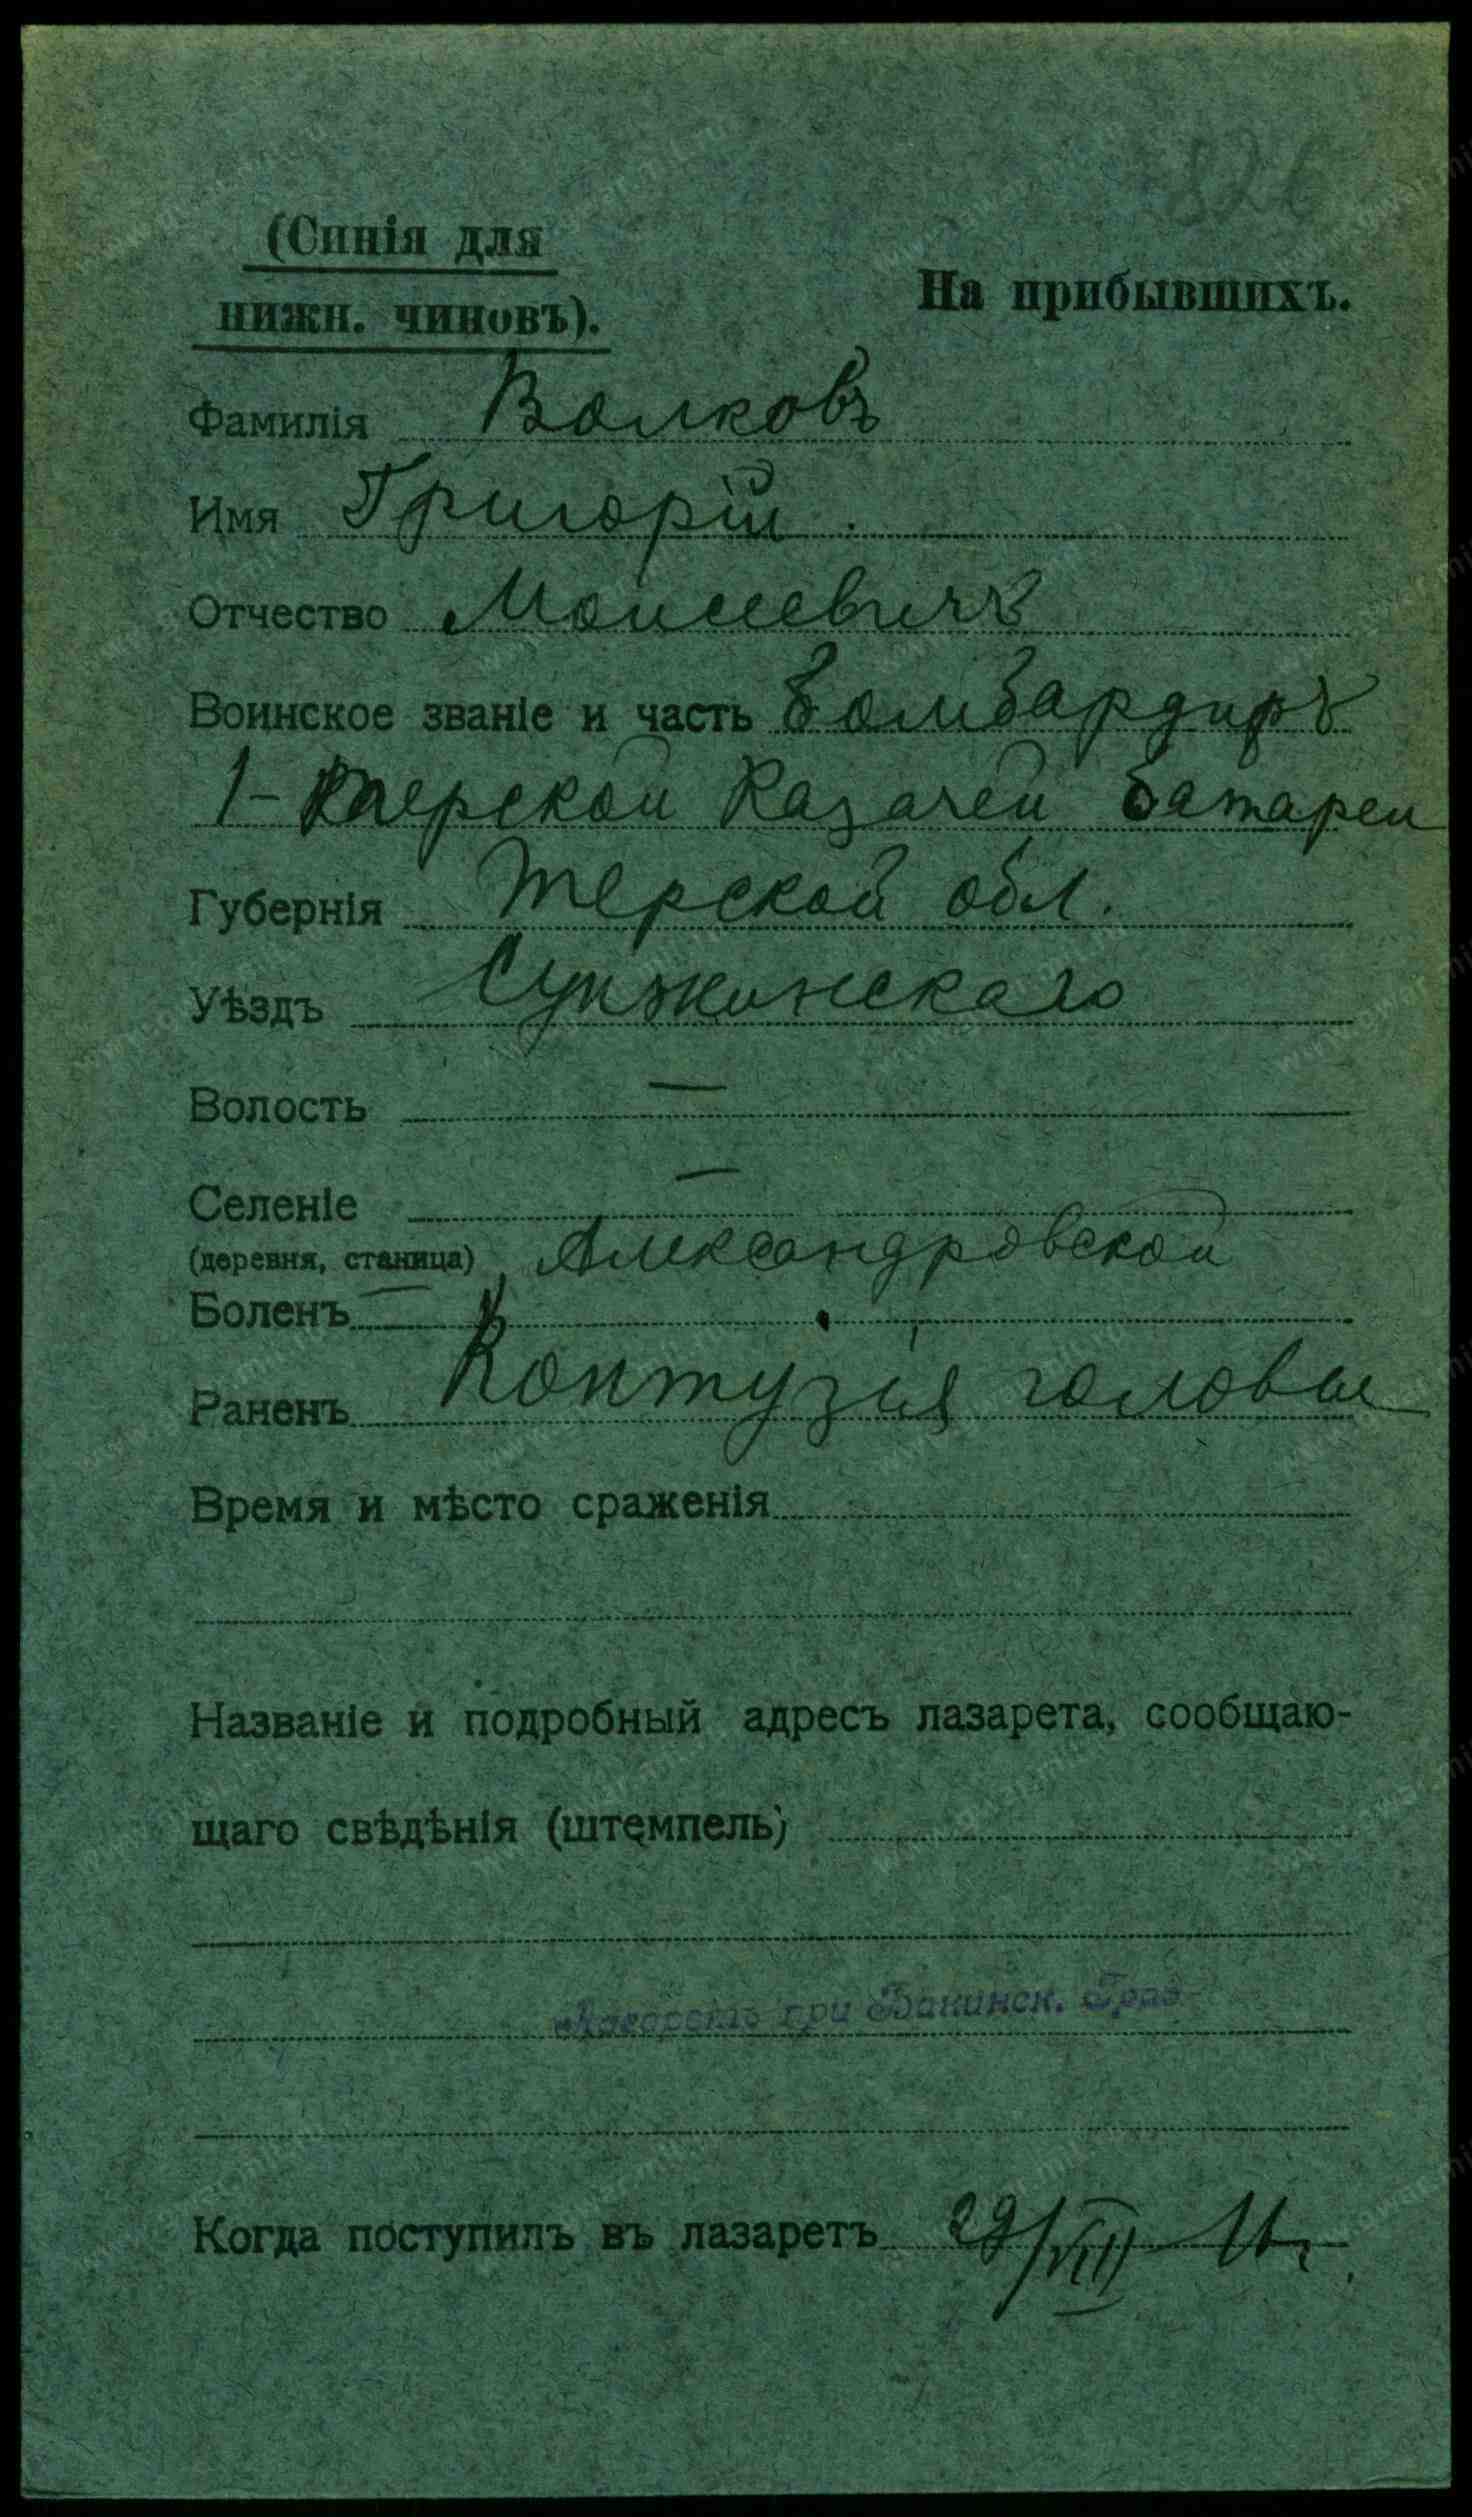 326
(Синія для
нижн. чиновъ).
На прибывшихъ.
Фамилія Волковъ
Имя Григорій
Отчество Моисеевичъ
Воинское званіе и часть Бомбардиръ
1- Терской Казачей батареи
Губернія Терской обл.
Уѣздъ Сунжинскаго
Волость —
Селеніе —
(деревня, станица) Александровской
Боленъ —
Раненъ Контузія головы
Время и мѣсто сраженія
Названіе и подробный адресъ лазарета, сообщаю-
щаго свѣдѣнія (штемпель)
Лазаретъ при Бакинск. Град.
Когда поступилъ въ лазаретъ 29/VIII 16 г.